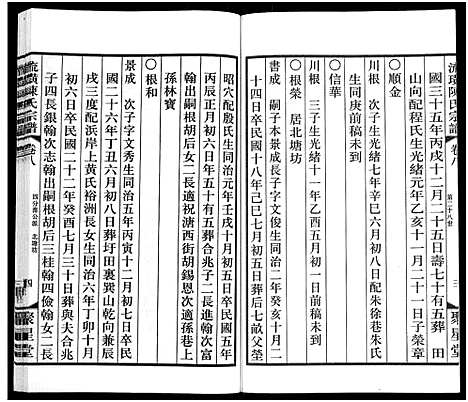 流璜陳氏宗譜 卷八
第二十八世
三
聚星堂
國三十五年丙戌十二月二十五日壽七十有五葬 田
山向配程氏生光緒元年乙亥十一月二十一日子榮章
○順金
川根 三子生光緒十一年乙酉五月初六日配朱徐巷朱氏
生同庚前稿未到
○信華
川根 次子生光緒七年辛巳十月初八日前稿未到
○根榮 居北塘坊
書成 嗣子本景成長子字文俊生同治二年癸亥十一月
十四日卒民國十八年己巳十一月初五日葬後七畝父塋
昭穴配殷氏生同治元年壬戌十月初五日卒民國五年
丙辰正月初六日年五十有五葬合兆子二長進翰次富
翰出嗣根胡后女二長適祝塘西街胡錫恩次適孫巷上
孫林寶
○根和
景成 次子字文秀生同治十二年 十二月初七日卒民
國二十六年丁丑六月初八日葬圩田裏巽山乾向兼辰
戌三度配浜岸上黃氏裕洲長女生同治六年丁卯十月
初六日卒民國二十二年癸酉七月三十日葬與夫合兆
子四長銀翰次志翰出嗣根胡后三桂翰四儉翰女二長
流璜陳氏宗譜 卷八
四分 公派 北塘坊
四
聚星堂